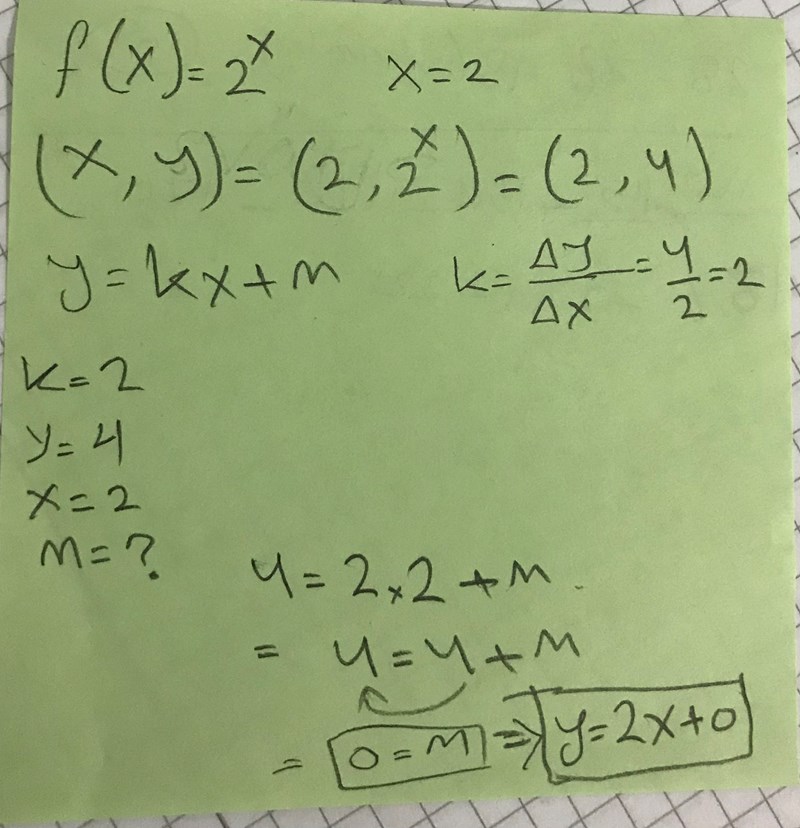 f(x)=2^x x=2
(x,y)=(2,2^x)=(2,4)
y=kx+m k=Δy/Δx=4/2=2
k=2
y=4
x=2
m=?
4=2×2+m
= 4=4+m
= 0=m ⇒ y=2x+0